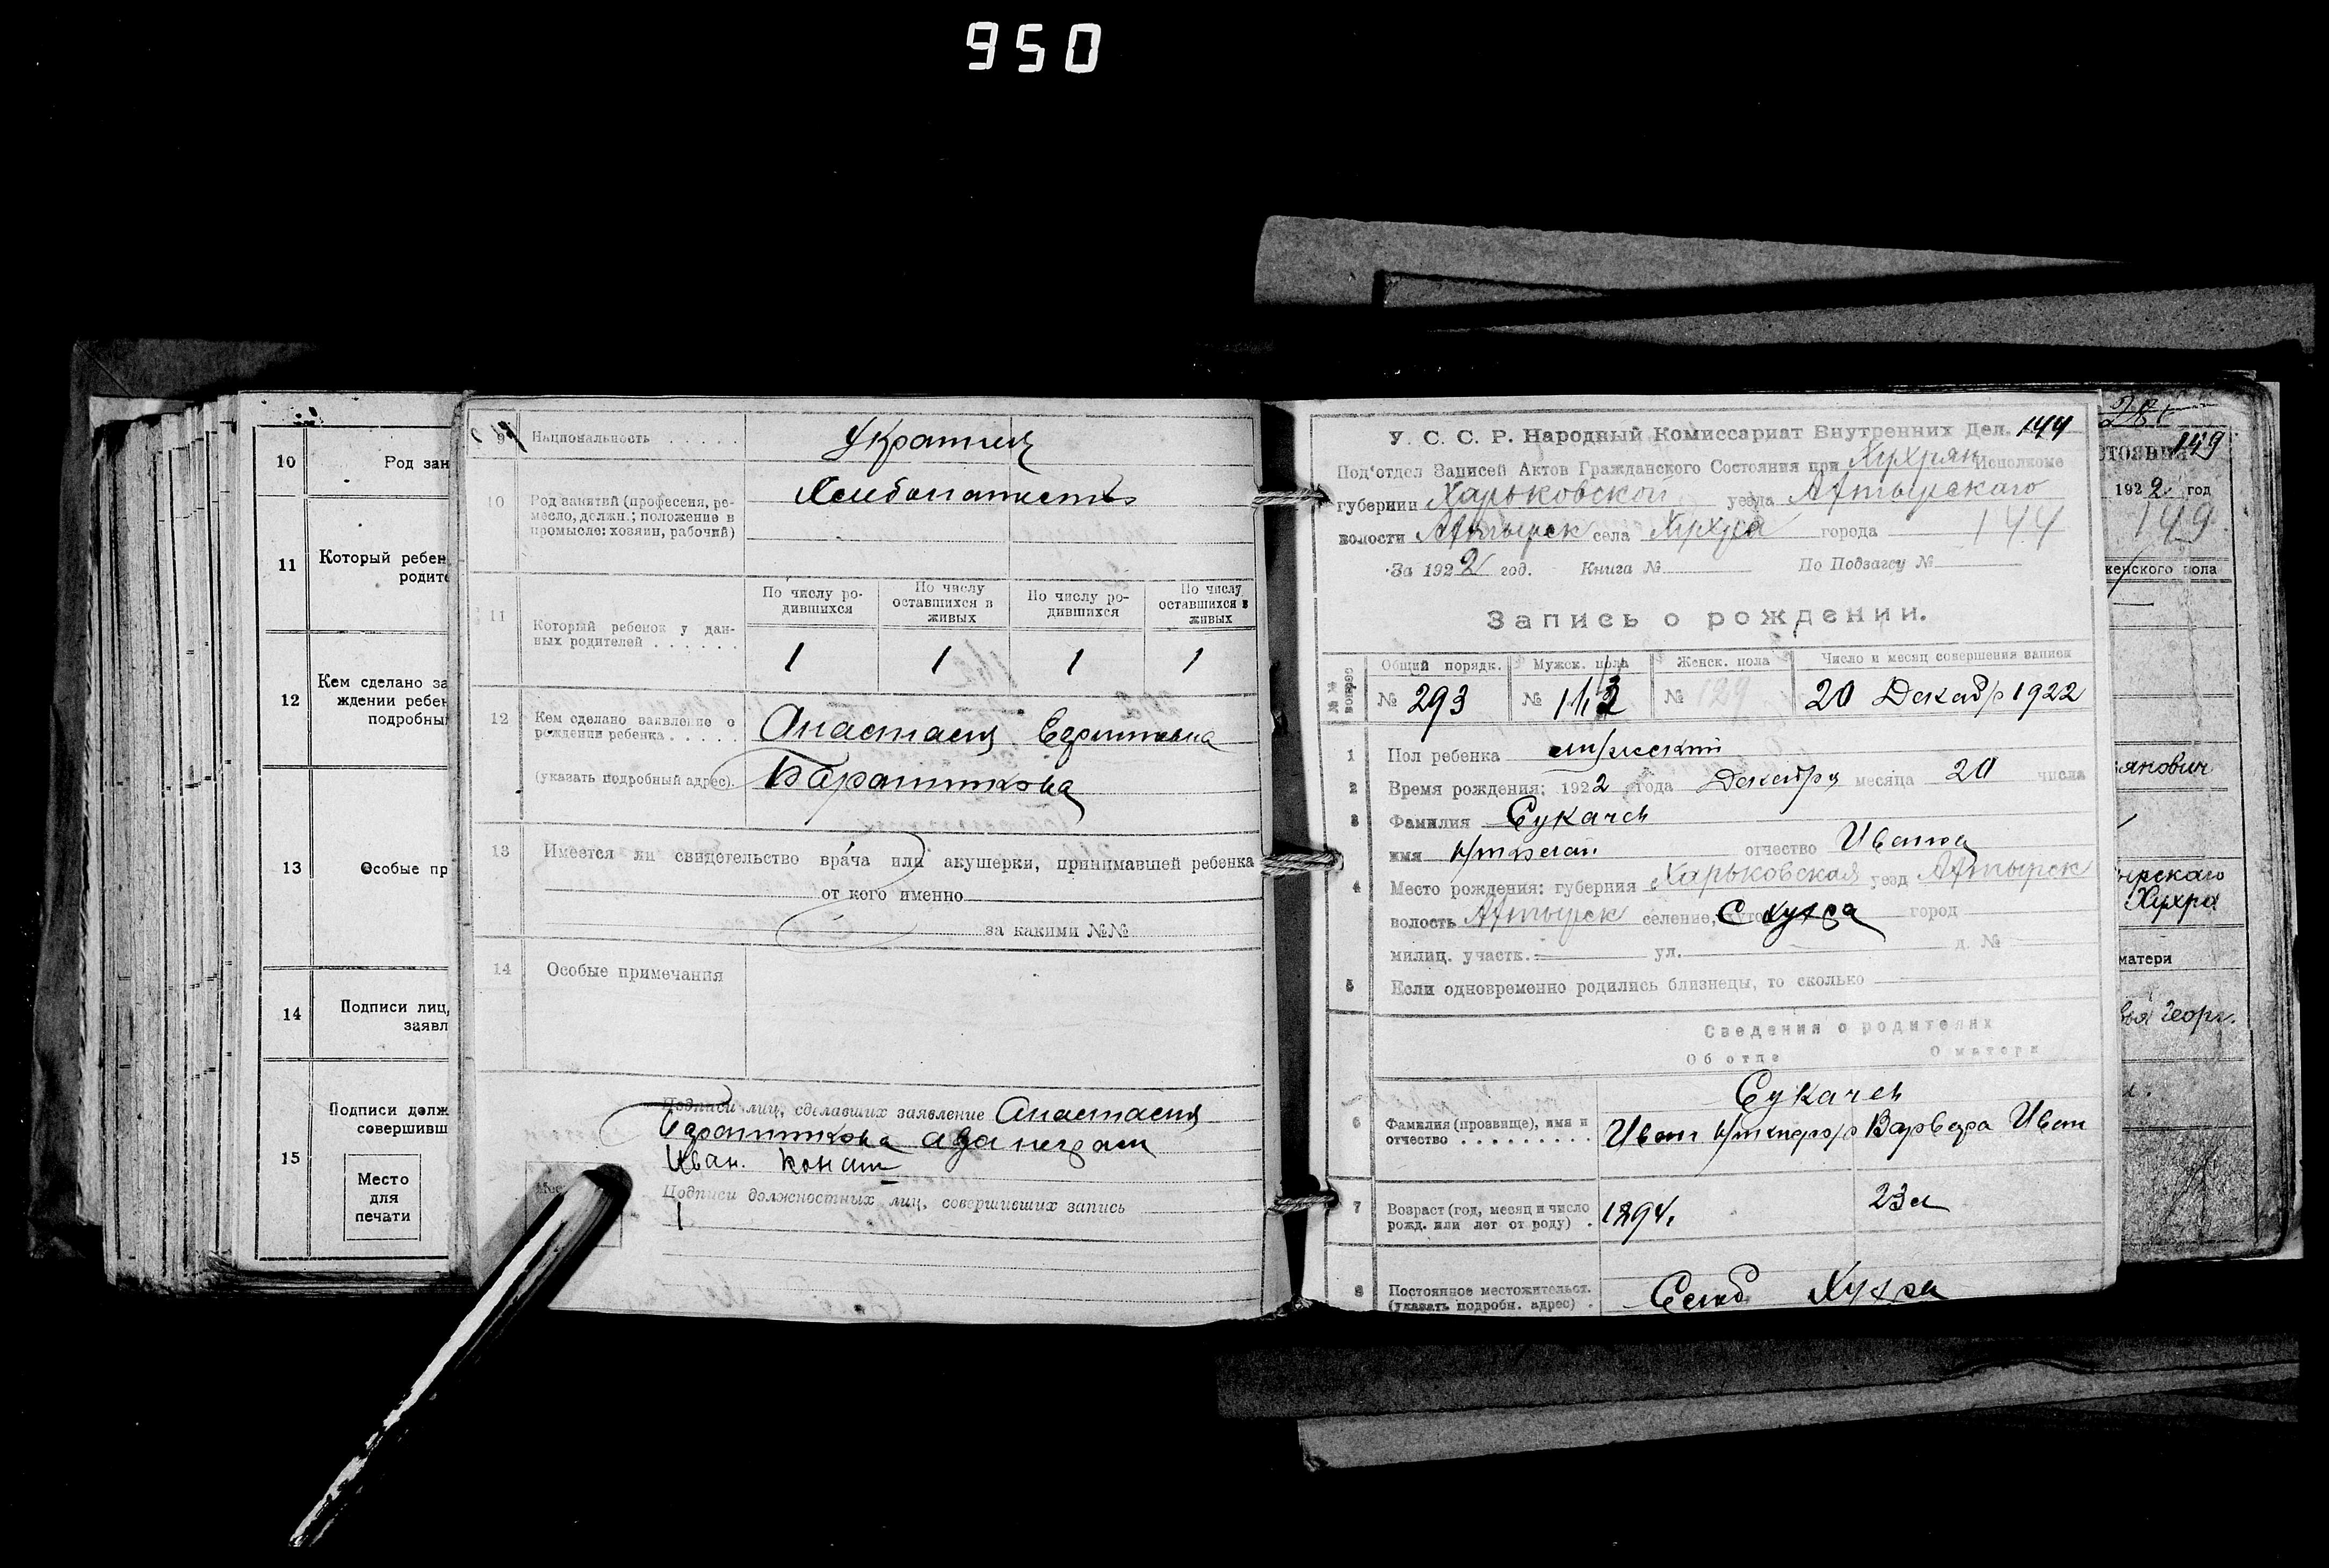 950
10 Род зан
11 Который ребен
родите
12 Кем сделано за
ждении ребен
подробны
13 Особые пр
14 Подписи лиц,
заявл
15 Подписи долж
совершивш
Место
для
печати
9 Национальность . . . . . Украинец
10 Род занятий (профессия, ре-
месло, должн.; положение в
промысле: хозяин, рабочий)
11 Который ребенок у дан-
ных родителей . . . . . .
По числу ро-
дившихся
По числу
оставшихся в
живых
По числу ро-
дившихся
По числу
оставшихся в
живых
1 1 1 1
12 Кем сделано заявление о
рождении ребенка . . . . . Анастасия
(указать подробный адрес).
13 Имеется ли свидетельство врача или акушерки, принимавшей ребенка
от кого именно
за какими №№
14 Особые примечания
Подписи лиц, сделавших заявление Анастасия
Иван.
Подписи должностных лиц, совершивших запись
У. С. С. Р. Народный Комиссариат Внутренних Дел. 144
Под'отдел Записей Актов Гражданского Состояния при Хухрян Исполкоме
губернии Харьковской уезда Ахтырскаго
волости Ахтырск села Хухра города 144
За 1922 год. Книга № По Подзагсу №
Запись о рождении.
№№ вопрос
Общий порядк. Мужск. пола Женск. пола Число и месяц совершения записи
№ 293 № 113 № 129 20 Декабр 1922
1 Пол ребенка мужский
2 Время рождения: 1922 года Декабря месяца 20 числа
3 Фамилия Сукачев
имя отчество Иванов
4 Место рождения: губерния Харьковская уезд Ахтырск
волость Ахтырск селение, С Хухра город
милиц. участк. ул. д. №
5 Если одновременно родились близнецы, то сколько
Сведения о родителях
Об отце О матери
Сукачев
6 Фамилия (прозвище), имя и
отчество . . . . . . . . . Иван Варвара Иван
7 Возраст (год, месяц и число
рожд. или лет от роду) . 1894. 23 л
8 Постоянное местожительст.
(указать подробн. адрес) . Хухра
149
стояния
1922 год
149
женского пола
янович
ырскаго
Хухра
матери
Георг.